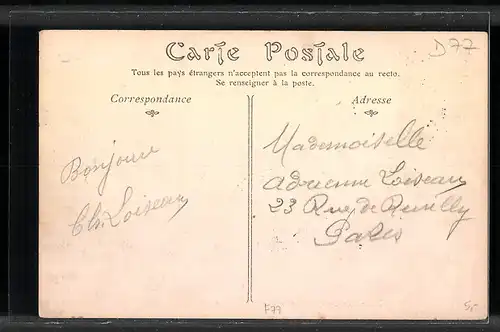 D77
Carte Postale
Tous les pays étrangers n'acceptent pas la correspondance au recto.
Se renseigner à la poste.
Correspondance
Adresse
Bonjour
Ch. Loiseau
Mademoiselle
Adrienne Loiseau
23 Rue de Reuilly
Paris
F77